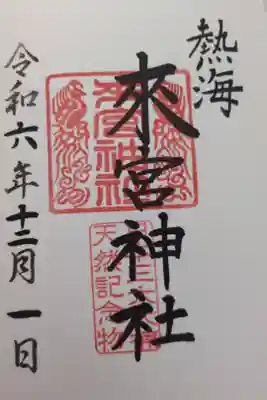 熱海
來宮神社
令和六年十二月一日
天然記念物